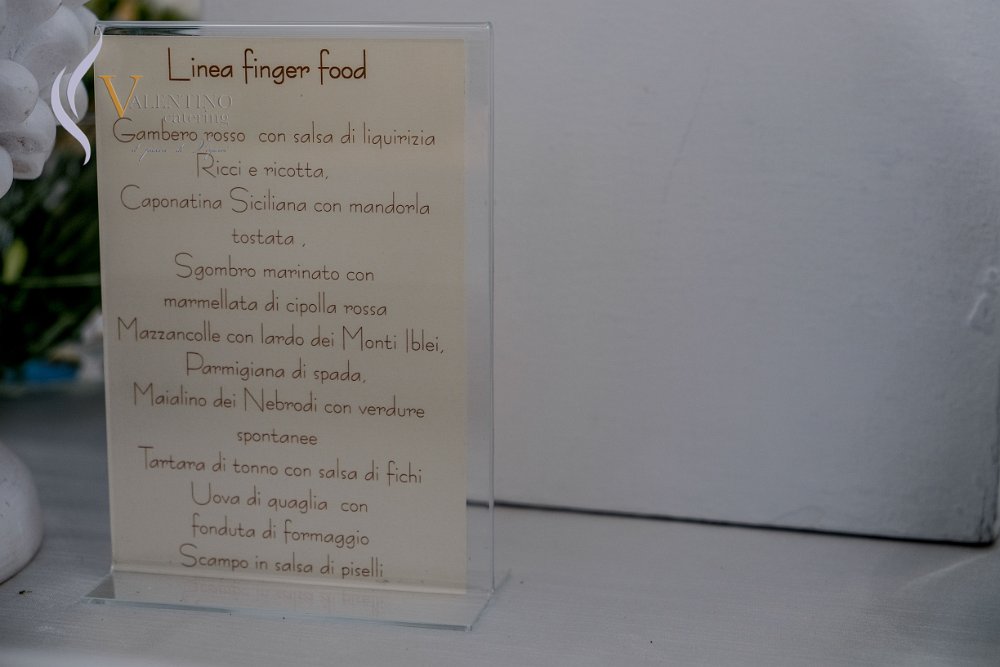 Linea finger food
VALENTINO
catering
Gambero rosso con salsa di liquirizia
Ricci e ricotta,
Caponatina Siciliana con mandorla
tostata ,
Sgombro marinato con
marmellata di cipolla rossa
Mazzancolle con lardo dei Monti Iblei,
Parmigiana di spada,
Maialino dei Nebrodi con verdure
spontanee
Tartara di tonno con salsa di fichi
Uova di quaglia con
fonduta di formaggio
Scampo in salsa di piselli